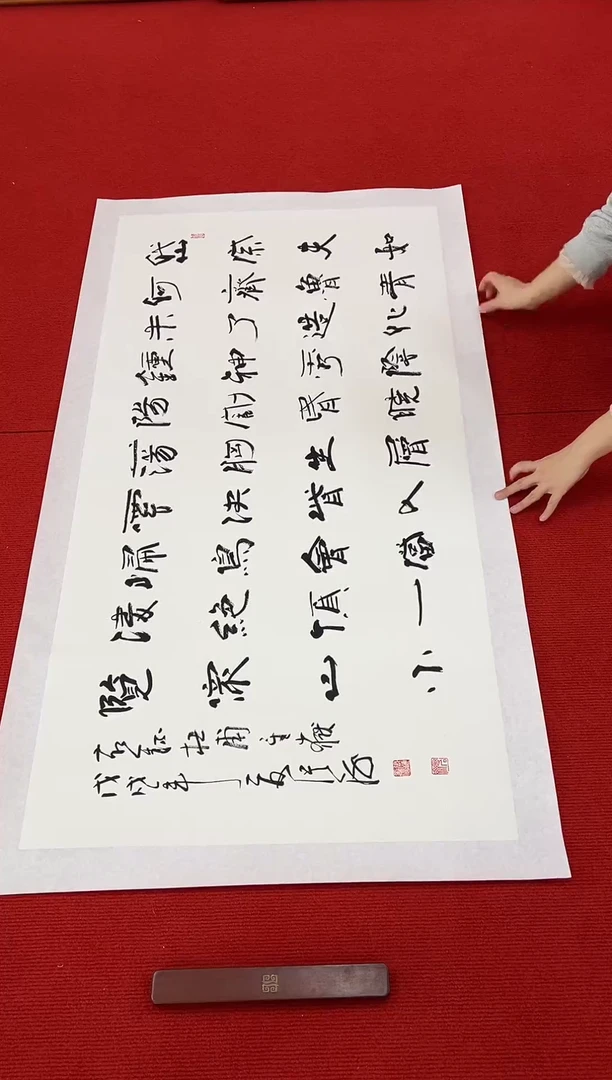 岱宗夫如
何齊魯青
未了造化
鍾神秀陰
陽割昏曉
蕩胸生層
雲決眥入
歸鳥會當
凌絕頂一
覽眾山小
右錄杜甫望嶽
戊戌年